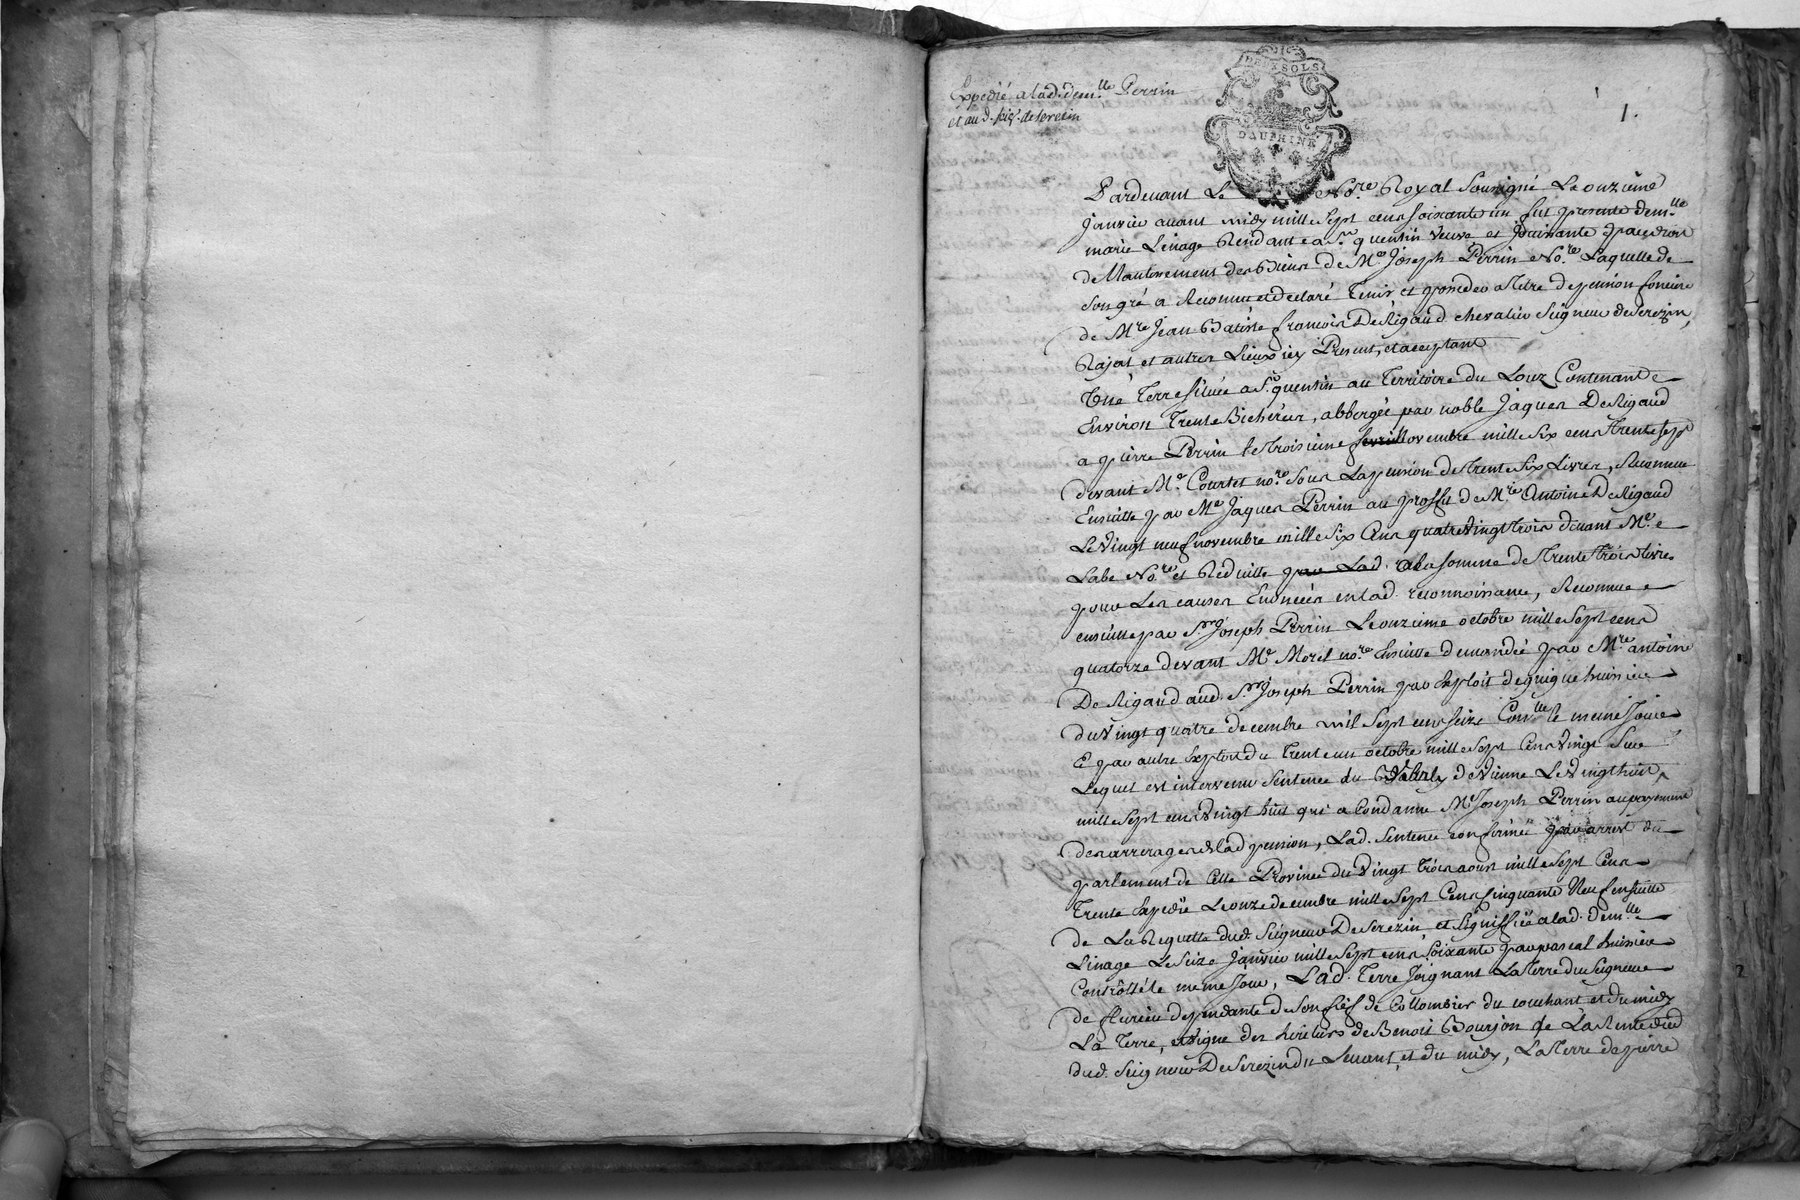 Expedié a lad. dem.lle Perrin
et au d. seig.r de serezin
DEUX SOLS
DAUPHINÉ
1.
Pardevant Le No.re Royal Sousigné Le onzieme
janvier avant midy mille Sept cens soixante un fut presente dem.lle
marie Linage Rendante a S.t quentin veuve et jouissante par droit
de Maintenement des Biens de M.e Joseph Perrin No.re Laquelle de
Son gré a Reconnu et declaré Tenir et posseder a titre de pension fonciere
de M.re Jean Batiste françois De Rigaud chevalier Seigneur de Serezin,
Rajat et autres Lieux icy Present, et acceptant
Une Terre située a S.t quentin au Territoire du Louz Contenant
Environ Trente Bicherées, abbergée par noble Jaques De Rigaud
a pierre Perrin le troisieme novembre mille Six cens trente sept
devant M.e Courtet no.re Sous La pension de trente Six Livres, Reconnue
Ensuitte par M.e Jaques Perrin au proffit de M.re Antoine De Rigaud
Le Vingt neuf novembre mille Six Cens quatre Vingt trois devant M.e
Labe No.re et Reduitte par Lad. a la somme de trente trois livres
pour Les causes Enoncées en lad. reconnoissance, Reconnue
ensuitte par S.r Joseph Perrin Le onzieme octobre mille Sept cens
quatorze devant M.e Morel no.re Ensuitte demandée par M.re antoine
De Rigaud aud. S.r Joseph Perrin par Exploit de guigue huissier
du Vingt quatre decembre mil Sept cens seize Con.llé le meme Jour
E par autre Exploit du trente un octobre mille Sept Cens Vingt Sur
Lequel est intervenu Sentence du de Vienne Le Vingt huit
mille Sept cens Vingt huit qui a Condanné M.e Joseph Perrin au payement
des arrerages de lad pension, Lad. Sentence confirmée par arrest du
parlement de Cette Province du Vingt trois aoust mille Sept Cens
Trente Expedié Le onze decembre mille Sept Cens Cinquante Neuf ensuitte
de La Requette dud. Seigneur De Serezin et Signiffiée a lad. dem.lle
Linage Le Seize Janvier mille Sept cens Soixante par pascal huissier
Controllé le meme Jour, Lad. Terre Joignant La Terre du Seigneur
de fleurieu dependante de Son fief de Collombier du couchant et du midy
La Terre, et vigne des heritiers de Benoit Bourjon de La Rente
dud. Seigneur De Serezin du Levant, et du midy, La Terre de pierre